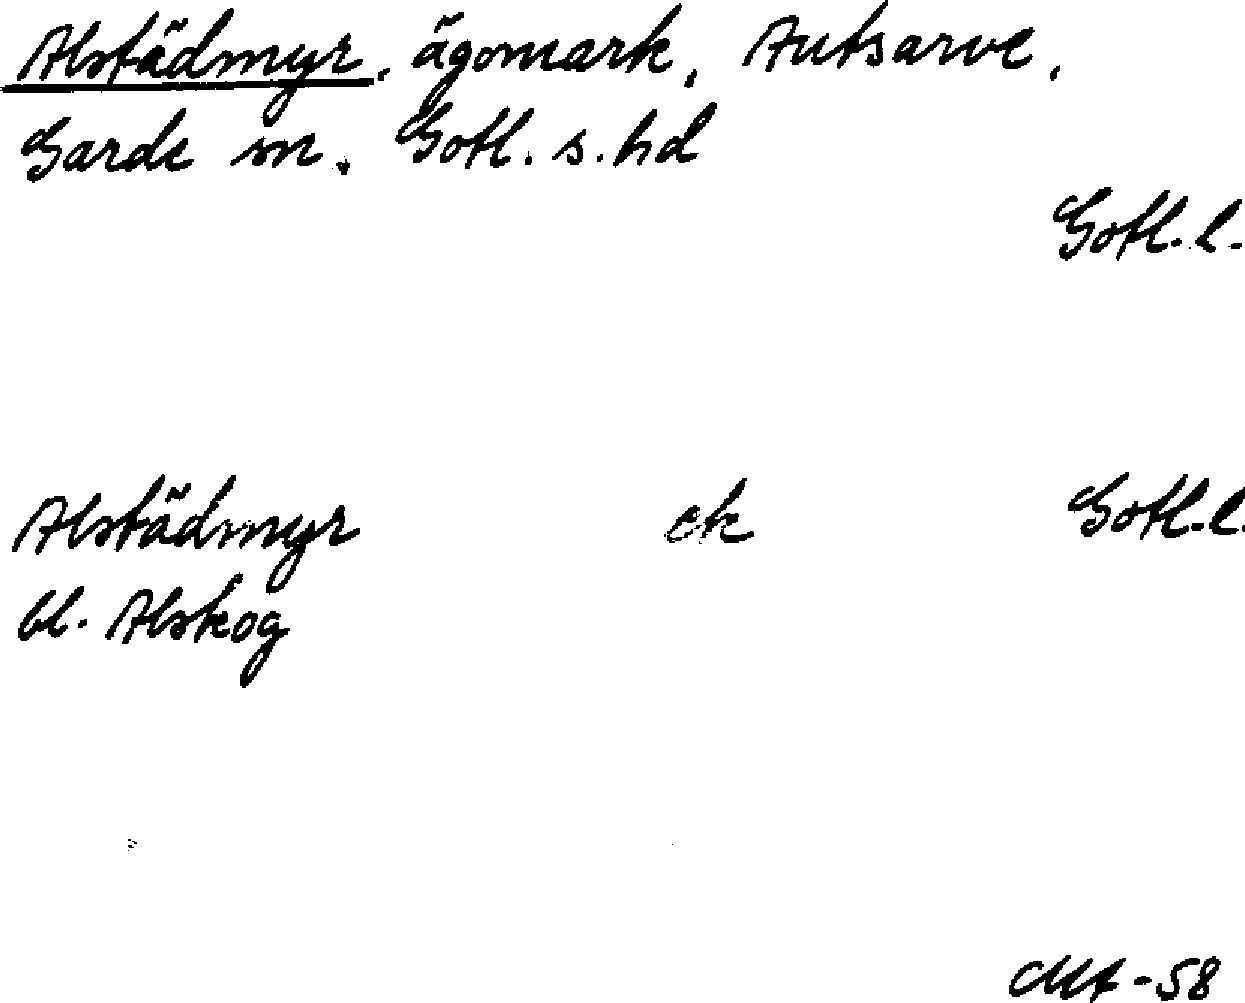 Alstädmyr, ägomark, Autsarve,
Garde sn. Gotl. s. hd
Gotl. l.
Alstädmyr ek Gotl. l.
bl. Alskog
-58